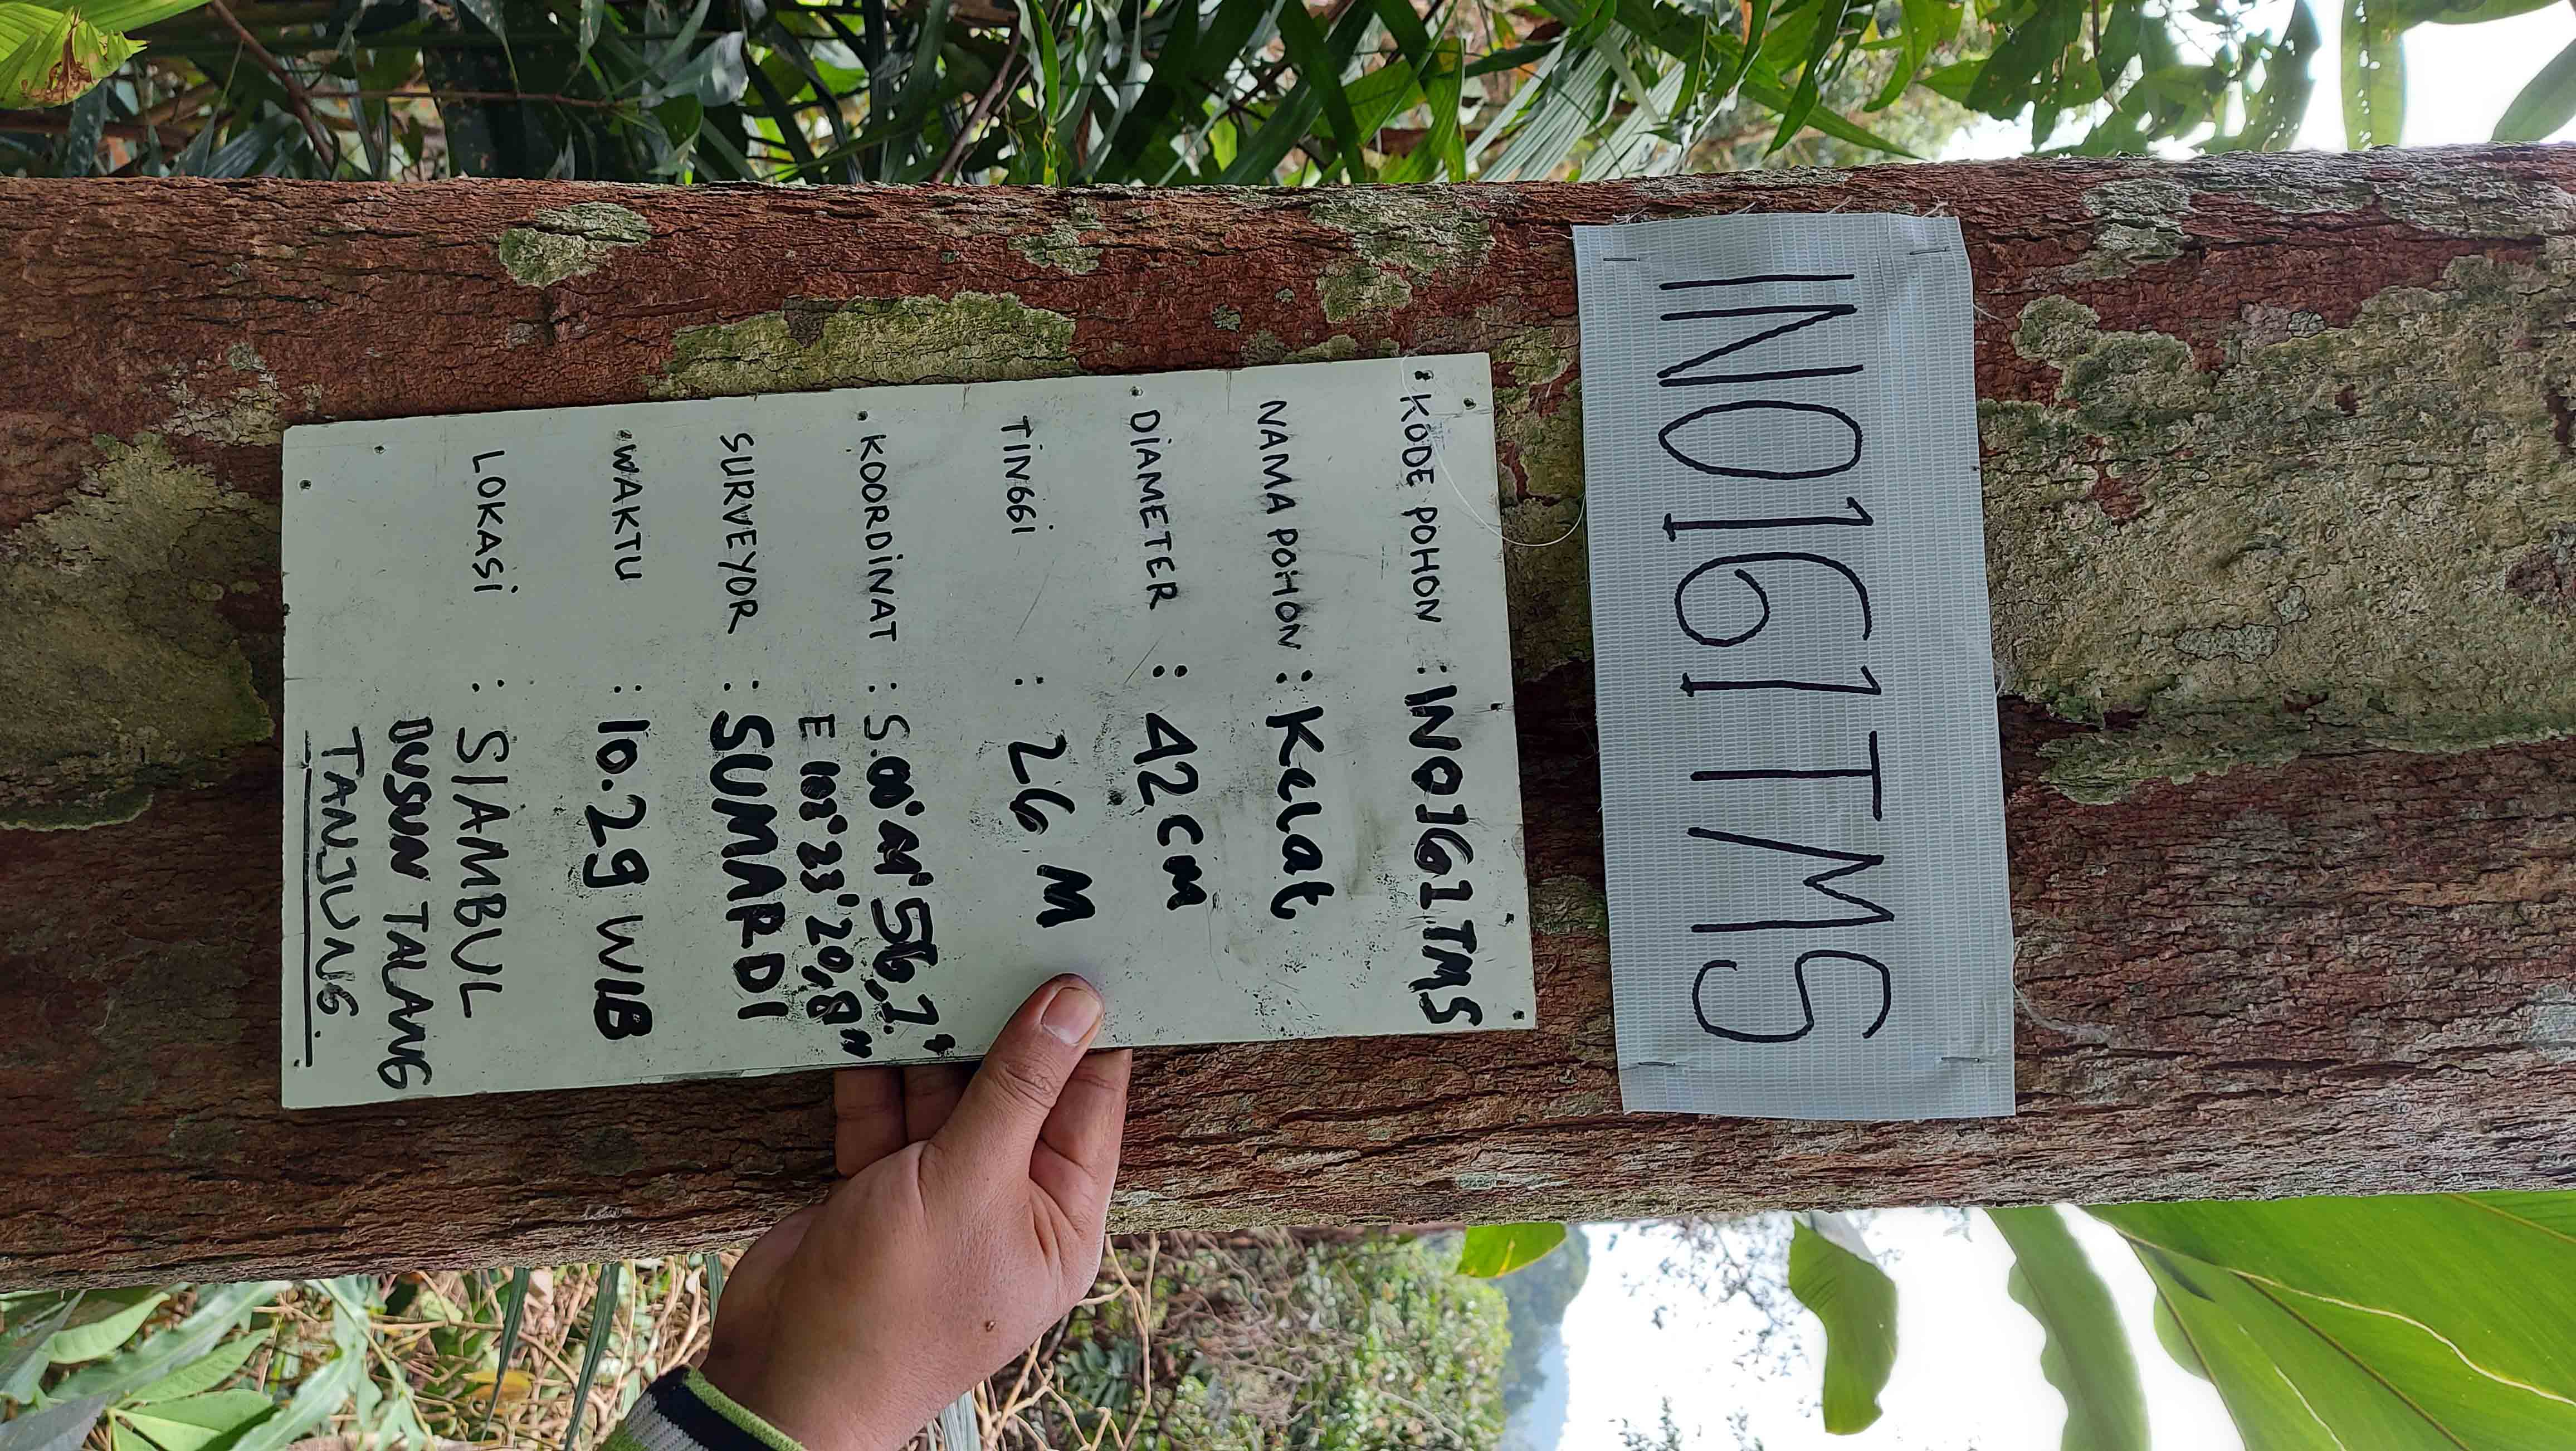 IN0161TMS
KODE POHON : IN0161TMS
NAMA POHON : Kelat
DIAMETER : 42 CM
TINGGI : 26 M
KOORDINAT : S. 00° 44' 56,1"
E 102° 23' 20,8"
SURVEYOR : SUMARDI
WAKTU : 10.29 WIB
LOKASI : SIAMBUL
DUSUN TALANG
TANJUNG.